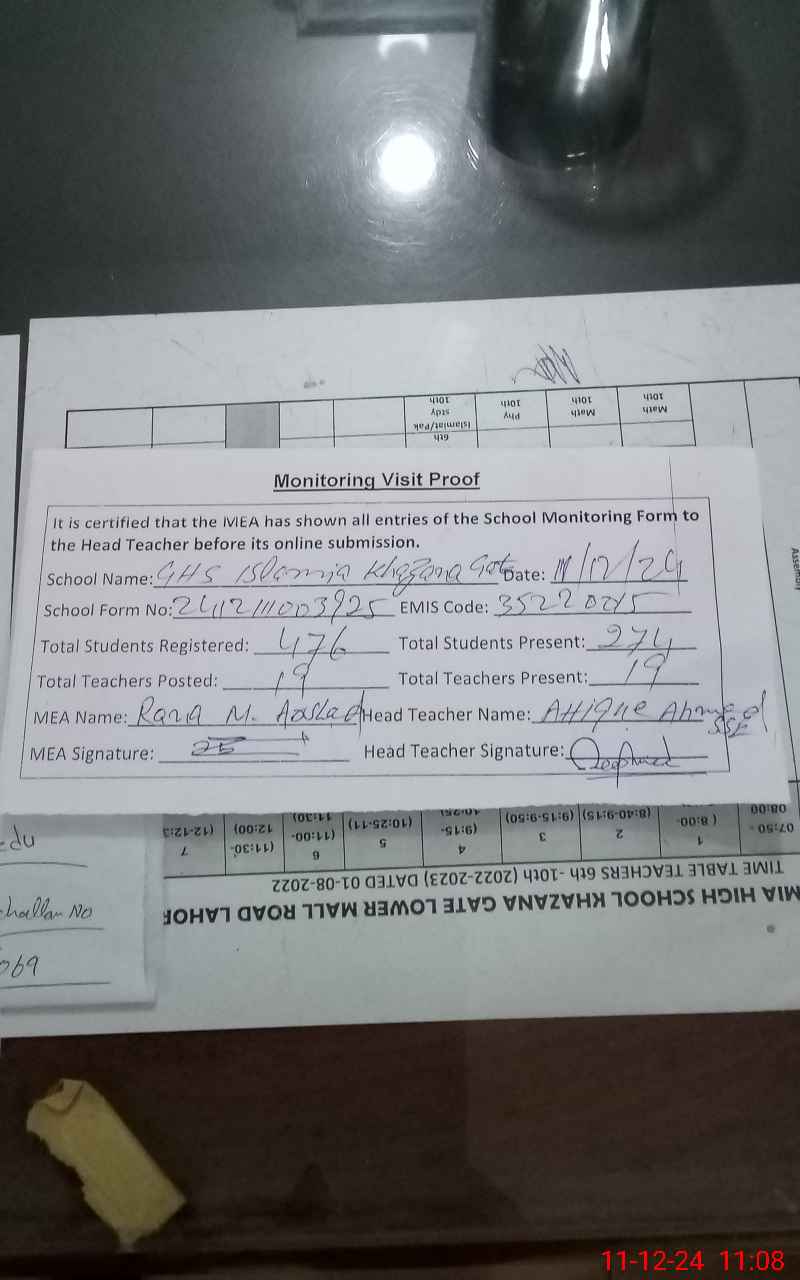 Math 10th
Math 10th
Phy 10th
6th Islamiat/Pak stdy 10th
Assembly
Monitoring Visit Proof
It is certified that the MEA has shown all entries of the School Monitoring Form to
the Head Teacher before its online submission.
School Name: GHS Islamia Khazana Gate Date: 11/12/24
School Form No: 241211003925 EMIS Code: 35220245
Total Students Registered: 476 Total Students Present: 274
Total Teachers Posted: 19 Total Teachers Present: 19
MEA Name: Rana M. Head Teacher Name: Attique Ahmed
SSE
MEA Signature: Head Teacher Signature:
07:50 - 08:00
1 (8:00-
2 (8:40-9:15)
3 (9:15-9:50)
4 (9:15-
5 (10:25-11)
6 (11:00- 11:30)
7 (12-12:3
(11:30- 12:00)
TIME TABLE TEACHERS 6th -10th (2022-2023) DATED 01-08-2022
MIA HIGH SCHOOL KHAZANA GATE LOWER MALL ROAD LAHOR
edu
challan No
069
11-12-24 11:08